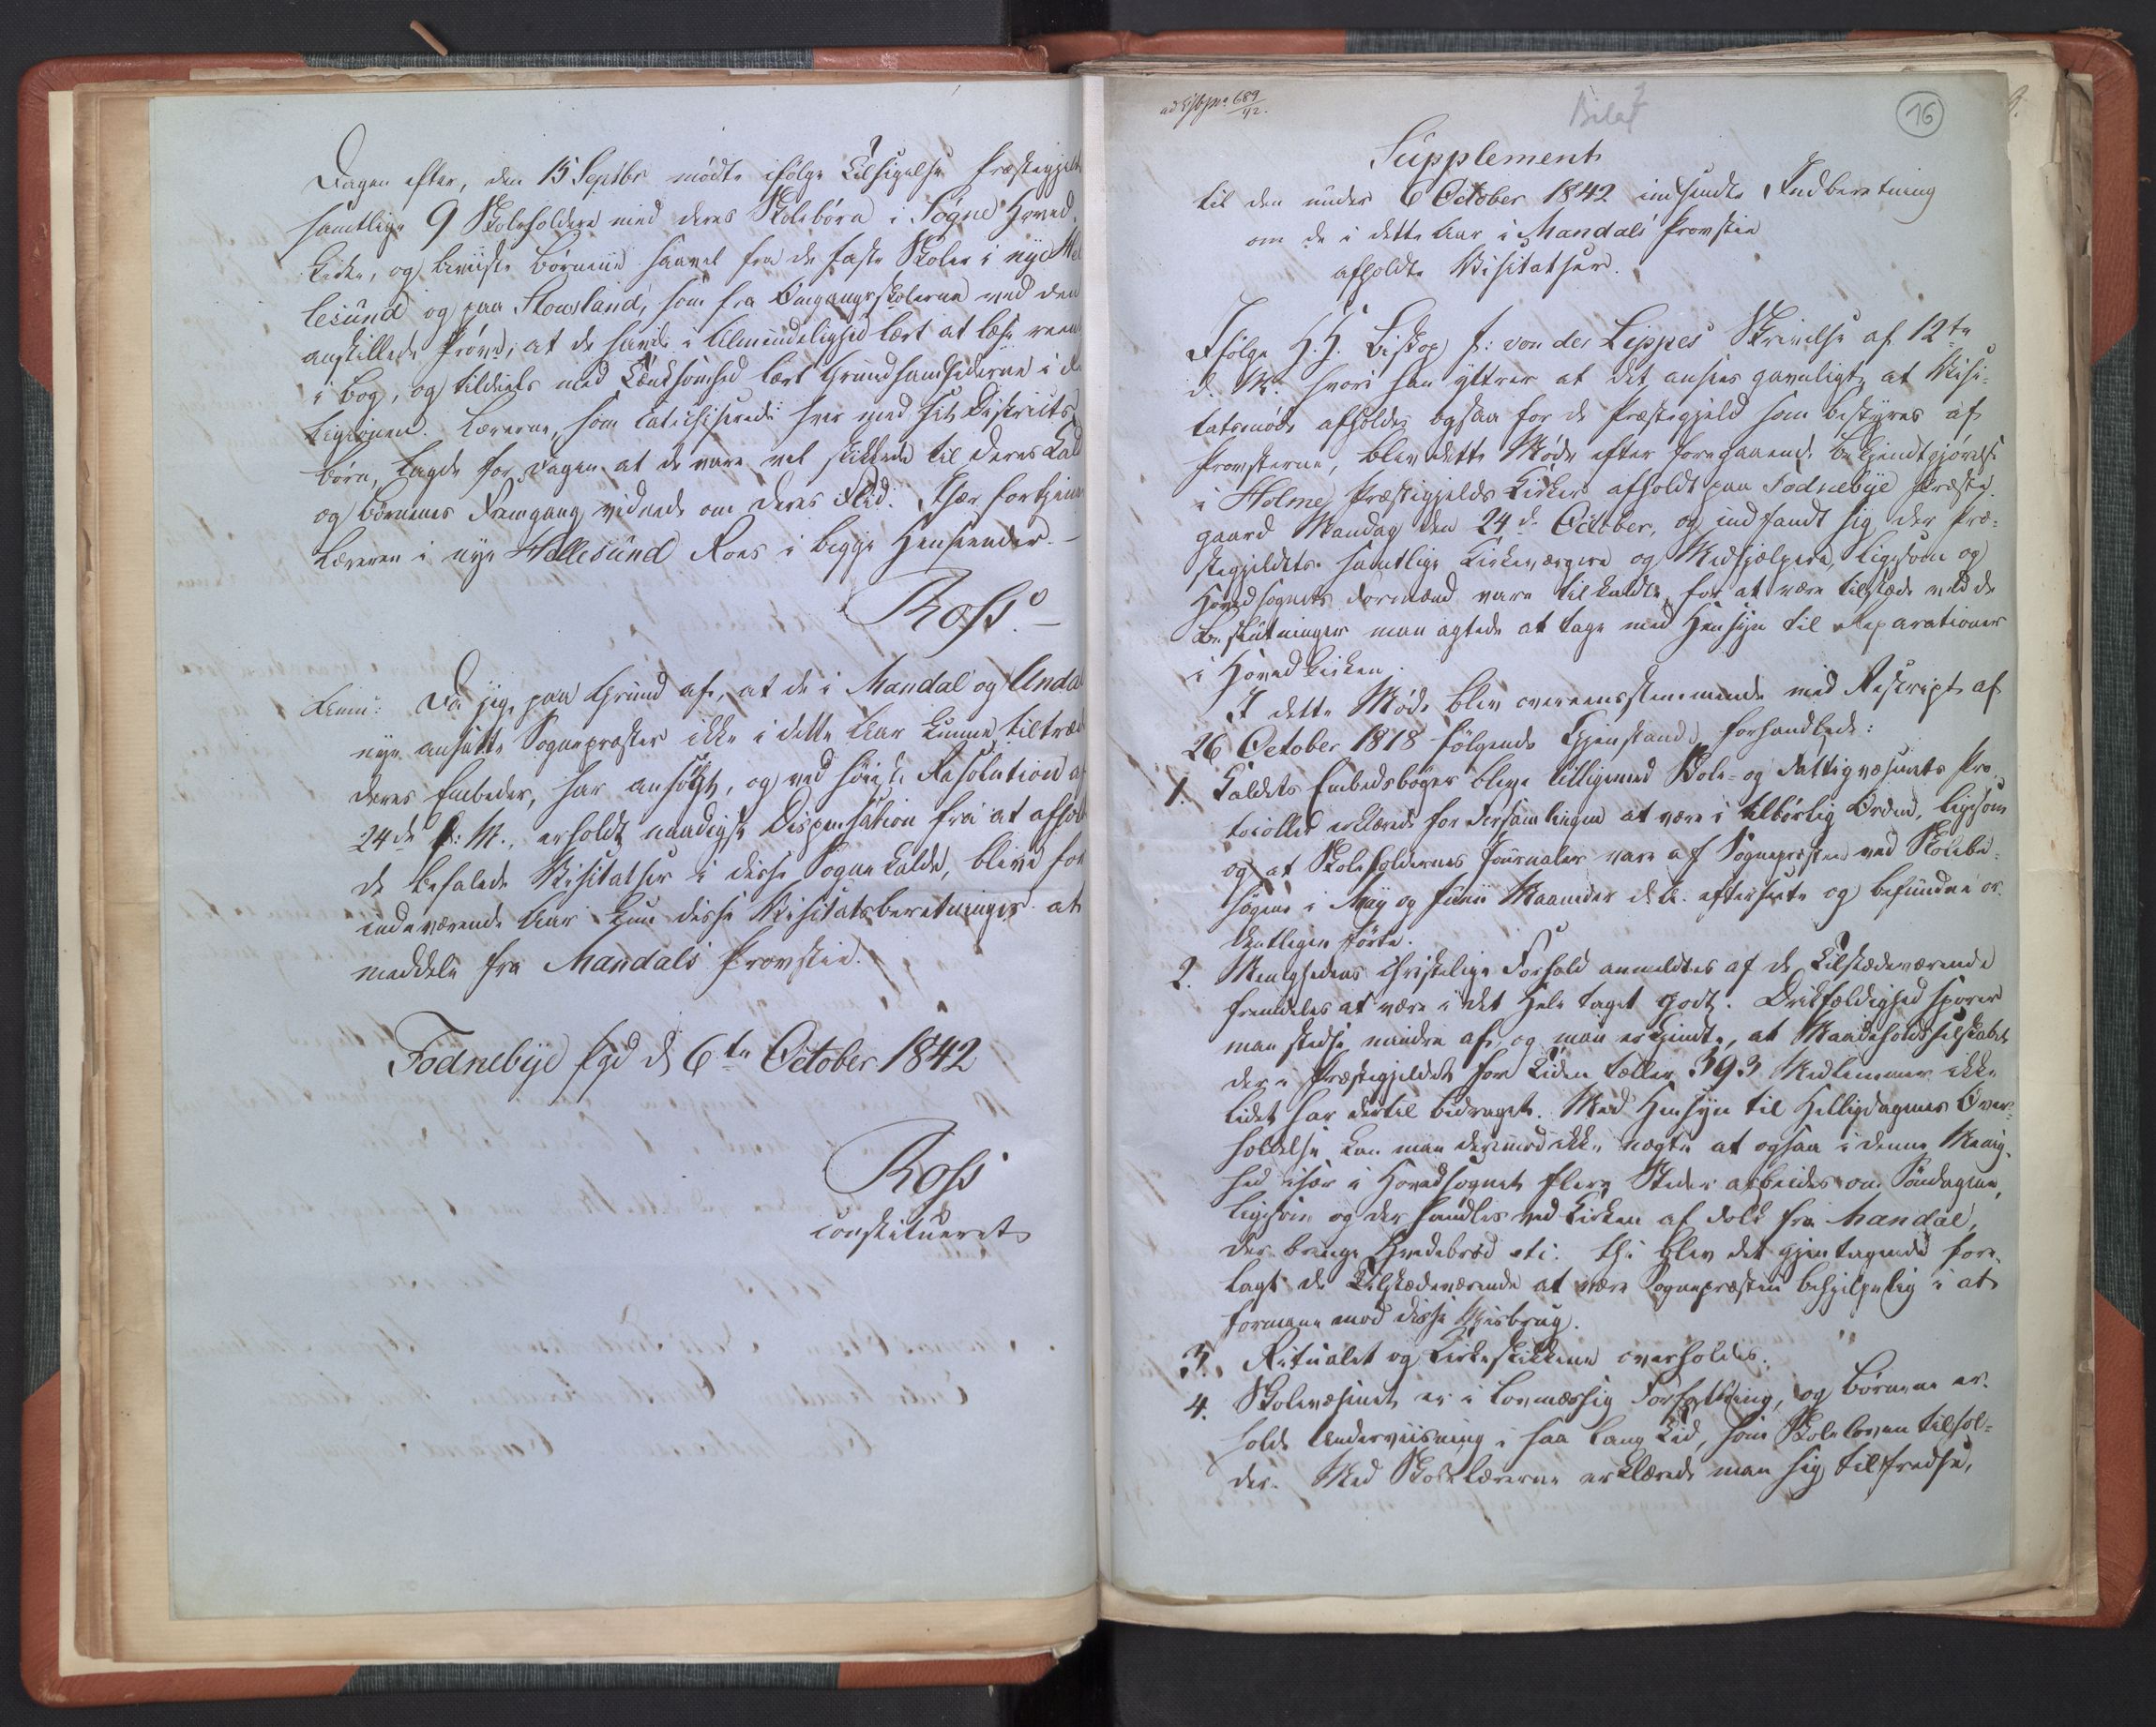 Dagen efter, den 15 Septbr mødte ifølge Tilsigelse Præstegjeld
samtlige 9 Skoleholdere med deres Skolebørn i Søgne Hoved
kirke, og beviiste Børnene saavel fra de faste Skoler i nye Hel
lesund og paa Stousland, som fra Omgangsskolerne ved den
anstillede Prøve, at de havde i Almindelighed lært at læse reent
i Bog, og tildeels med Tænksomhed lært Grundsandhederne i
ligionen. Lærerne, som catechiserede hver med sit Districts
børn, lagde for Dagen at de vare vel skikkede til deres Kald
og Børnenes Fremgang vidnede om deres Flid. Især fortjener
Læreren i nye Hellesund Roes i begge Henseender.-
Ross.-
Da jeg, paa Grund af, at de i Mandal og Unda
nye ansatte Sognepræster ikke i dette Aar kunne tiltræde
deres Embeder, har ansøgt, og ved høieste Resolution af
24de f: M., erholdt naadigst Dispensation fra at afhol
de befalede Visitatser i disse Sognekalde, blive for
indeværende Aar kun disse Visitatsberetninger at
meddele fra Mandals Provstie.
Fodnebye Pgd d 6te October 1842
Ross
constitueret
689
42.
Bilag
16
Supplement
til den under 6 October 1842 indsendte Indberetning
om de i dette Aar i Mandals Provstie
afholdte Visitatser.
Ifølge H.H. Biskop J: von der Lippes Skrivelse af 12te
d. M. hvori han yttrer at det ansees gavnligt, at Visi=
tatsmøde afholdes ogsaa for de Præstegjeld som bestyres af
Provsterne, blev dette Møde efter foregaaende Bekjendtgjørelse
i Holme Præstegjelds Kirker afholdt paa Fodnebye Præste
gaard Mandag den 24de October, og indfandt sig der Præ=
stegjeldets samtlige Kirkeværgere og Medhjælpere, ligesom og
Hovedsognets Formænd vare tilkaldte, for at være tilstæde ved de
Beslutninger man agtede at tage med Hensyn til Reparationer
i Hovedkirken.
I dette Møde blev overeensstemmende med Rescript af
26 October 1818 følgende Gjenstande forhandlede:
1. Kaldets Embedsbøger bleve tilligemed Skole- og Fattigvæsenets Pro
tocoller erklærede for Forsamlingen at være i tilbørlig Orden, ligesom
og at Skoleholdernes Journaler vare af Sognepræsten ved Skolebe=
søgene i May og Junii Maaneder d. A. efterseete og befundne or
dentligen førte.
2. Menighedens christelige Forhold anmeldtes af de Tilstædeværende
fremdeles at være i det Hele taget godt. Drikfældighed sporer
man stedse mindre af, og man erkjendte, at Maadeholdsselskabet
der i Præstegjeldet for Tiden tæller 393 Medlemmer ikke
lidet har dertil bidraget. Med Hensyn til Helligdagenes Over=
holdelse kan man derimod ikke nægte at ogsaa i denne Menig=
hed især i Hovedsognet flere Steder arbeides om Søndagene,
ligesom og der handles ved Kirken af Folk fra Mandal,
der bringe Hvedebrød etc. Thi blev det gjentagende fore=
lagt de Tilstædeværende at være Sognepræsten behjelpelig i at
formane mod disse Misbrug.
3. Ritualet og Kirkeskikkene overholdes.
4. Skolevæsenet er i lovmæssig Forfatning, og Børnene er=
holde Underviisning i saa lang Tid, som Skoleloven tilhol=
der. Med Skolelærerne erklærede man sig tilfredse,